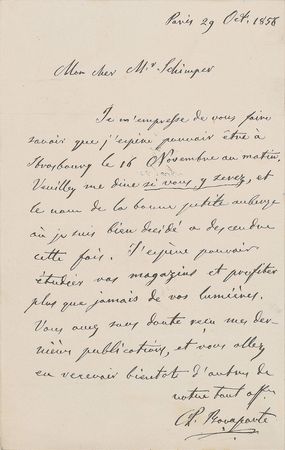 Paris 29 Oct. 1856
Mon cher Mr. Schimper
Je m'empresse de vous faire
savoir que j'espère pouvoir être à
Strasbourg le 16 Novembre au matin.
Veuillez me dire si vous y serez, et
le nom de la bonne petite auberge
où je suis bien décidé à descendre
cette fois. J'espère pouvoir
étudier vos magazins et profiter
plus que jamais de vos lumières.
Vous avez sans doute reçu mes der-
nières publications, et vous allez
en recevoir bientôt d'autres de
votre tout aff.
Ch. Bonaparte